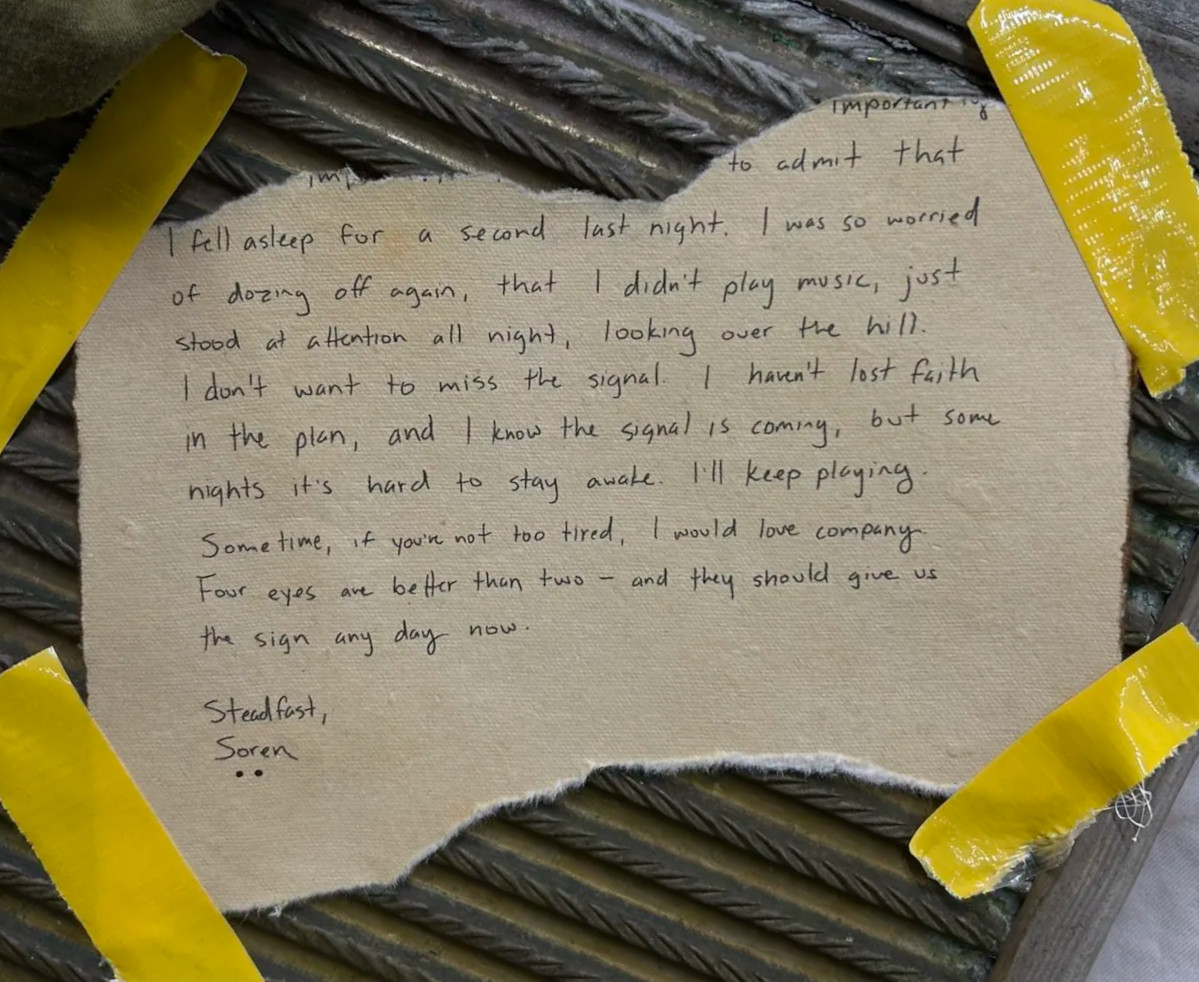 important
to admit that
I fell asleep for a second last night. I was so worried
of dozing off again, that I didn't play music, just
stood at attention all night, looking over the hill.
I don't want to miss the signal. I haven't lost faith
in the plan, and I know the signal is coming, but some
nights it's hard to stay awake. I'll keep playing.
Sometime, if you're not too tired, I would love company.
Four eyes are better than two – and they should give us
the sign any day now.
Steadfast,
Soren